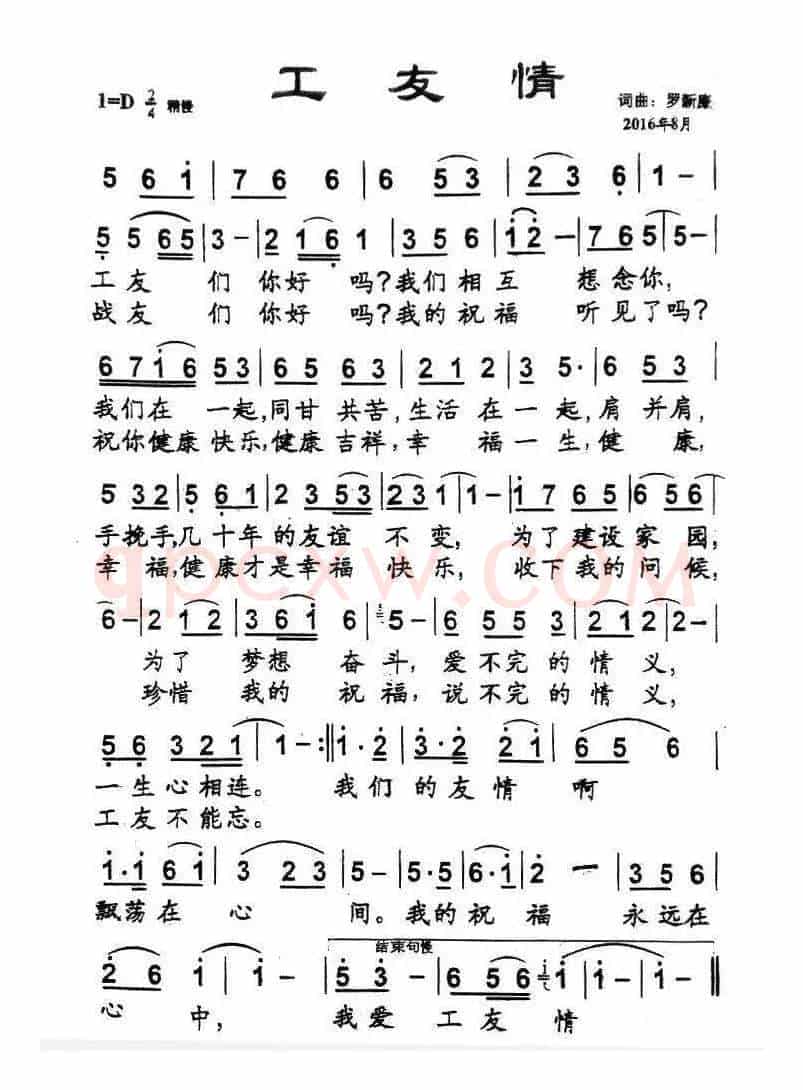 工友情
1=D 2/4 稍慢
词曲：罗新廉
2016年8月
5 6 1 | 7 6 6 | 6 5 3 | 2 3 6 | 1 – |
5 5 6 5 | 3 – | 2 1 6 1 | 3 5 6 | 1 2 – | 7 6 5 | 5 – |
工友 们 你好 吗?我们 相互 想念你,
战友 们 你好 吗?我的 祝福 听见了吗?
6 7 1 6 5 3 | 6 5 6 3 | 2 1 2 2 | 3 5· | 6 5 3 |
我们在 一起,同甘 共苦,生活 在 一 起,肩 并肩,
祝你健康 快乐,健康 吉祥,幸 福一生,健 康,
5 3 2 | 5 6 1 | 2 3 5 3 | 2 3 1 | 1 – | 1 7 6 5 | 6 5 6 |
手挽手,几十年的友谊 不 变, 为了建设家园,
幸 福,健康才是幸福 快乐, 收下我的问候,
6 – | 2 1 2 | 3 6 1 6 | 5 – | 6 5 5 3 | 2 1 2 | 2 – |
为了 梦想 奋斗, 爱不完的情义,
珍惜 我的 祝福, 说不完的情义,
5 6 3 2 1 | 1 – :|| 1· 2 | 3· 2 | 2 1 | 6 5 6 |
一生心相连。 我们的友情 啊
工友不能忘。
1· 1 6 1 | 3 2 3 | 5 – | 5· 5 | 6· 1 | 2 – | 3 5 6 |
飘荡在 心 间。我的祝福 永远在
结束句慢
2 6 | 1 | 1 – | 5 3 – | 6 5 6 5 | 1 | 1 – ||
心 中, 我爱 工友 情
qpcxw.com